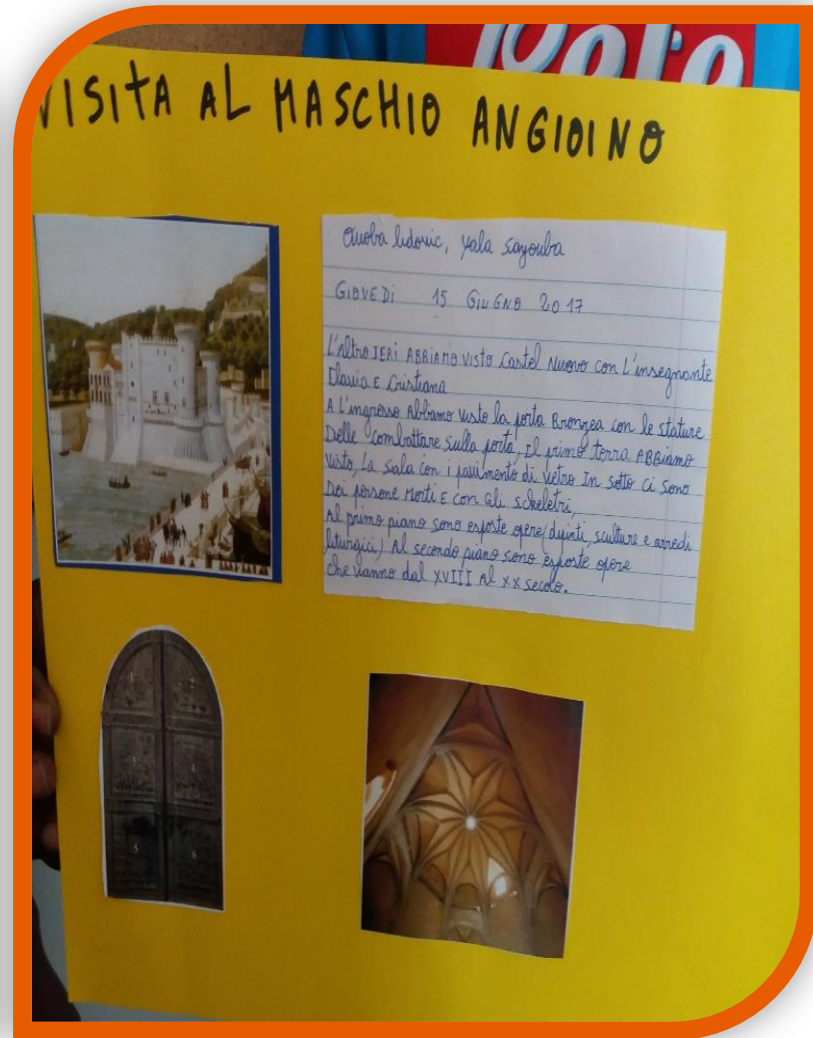 VISITA AL MASCHIO ANGIOINO
Ouoba lidovic, yala sayouba
GIOVEDì 15 GIUGNO 2017
L'Altro IERI ABBIAMO VISTO Castel Nuovo con L'insegnante
Flavia E Cristiana
A L'ingresso Abbiamo visto la porta Bronzea con le stature
Delle combattare sulla porta, Il primo terra ABBiamo
visto, La sala con i pavimento di vetro In sotto ci sono
Dei persone Morti E con Gli scheletri,
Al primo piano sono esposte opere (dipinti, sculture e arredi
liturgici) Al secondo piano sono esposte opere
che vanno dal XVIII Al XX secolo.